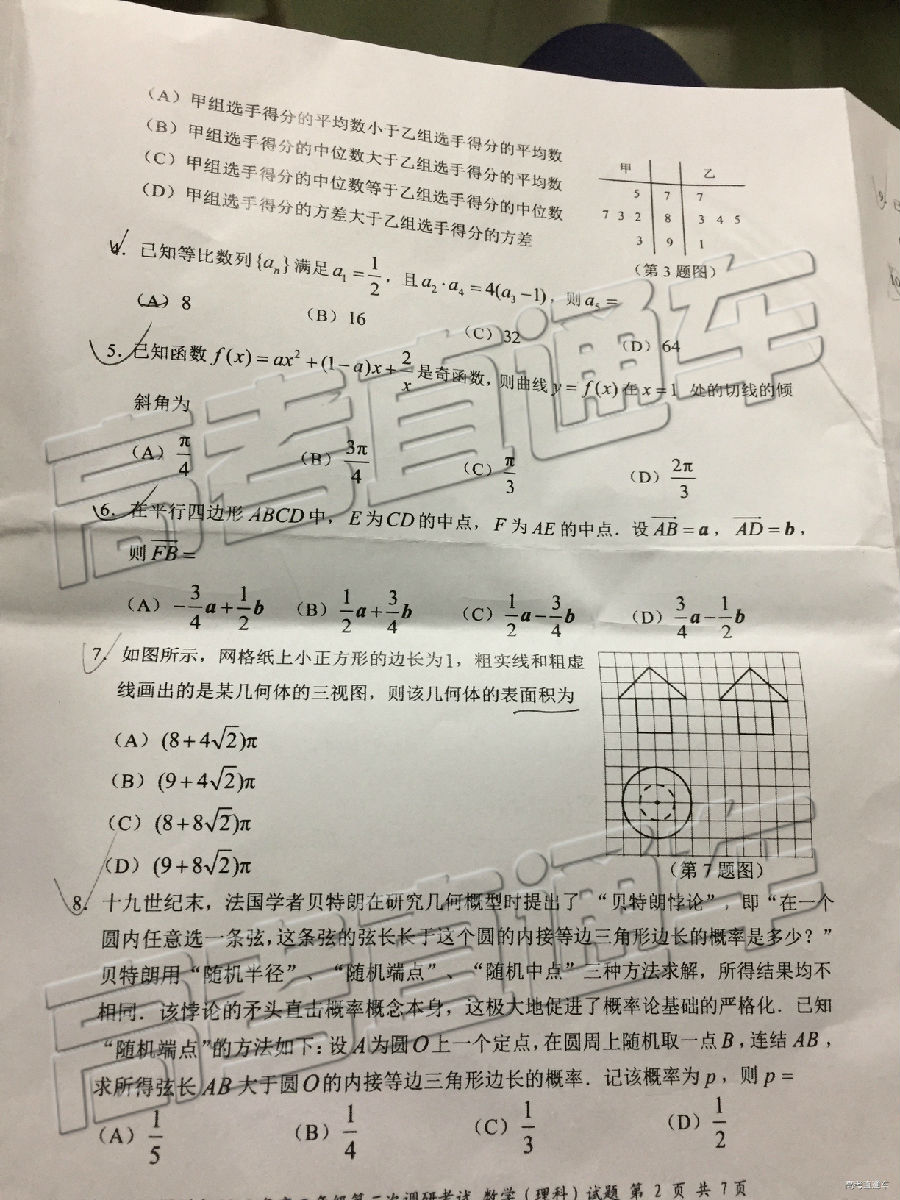 (A) 甲组选手得分的平均数小于乙组选手得分的平均数
(B) 甲组选手得分的中位数大于乙组选手得分的平均数
(C) 甲组选手得分的中位数等于乙组选手得分的中位数
(D) 甲组选手得分的方差大于乙组选手得分的方差
甲 乙
5 7 7
7 3 2 8 3 4 5
3 9 1
(第3题图)
4. 已知等比数列{aₙ}满足a₁=1/2, 且a₂·a₄=4(a₃-1), 则a₅=
(A) 8 (B) 16 (C) 32 (D) 64
5. 已知函数f(x)=ax²+(1-a)x+2/x是奇函数, 则曲线y=f(x)在x=1处的切线的倾
斜角为
(A) π/4 (B) 3π/4 (C) π/3 (D) 2π/3
6. 在平行四边形ABCD中, E为CD的中点, F为AE的中点. 设AB=a, AD=b,
则FB=
(A) -3/4a+1/2b (B) 1/2a+3/4b (C) 1/2a-3/4b (D) 3/4a-1/2b
7. 如图所示, 网格纸上小正方形的边长为1, 粗实线和粗虚
线画出的是某几何体的三视图, 则该几何体的表面积为
(A) (8+4√2)π
(B) (9+4√2)π
(C) (8+8√2)π
(D) (9+8√2)π
(第7题图)
8. 十九世纪末, 法国学者贝特朗在研究几何概型时提出了“贝特朗悖论”, 即“在一个
圆内任意选一条弦, 这条弦的弦长长于这个圆的内接等边三角形边长的概率是多少?”
贝特朗用“随机半径”、“随机端点”、“随机中点”三种方法求解, 所得结果均不
相同. 该悖论的矛头直击概率概念本身, 这极大地促进了概率论基础的严格化. 已知
“随机端点”的方法如下: 设A为圆O上一个定点, 在圆周上随机取一点B, 连结AB,
求所得弦长AB大于圆O的内接等边三角形边长的概率. 记该概率为p, 则p=
(A) 1/5 (B) 1/4 (C) 1/3 (D) 1/2
次调研考试 数学(理科)试题 第2页 共7页
高考直通车
高考直通车
高考直通车